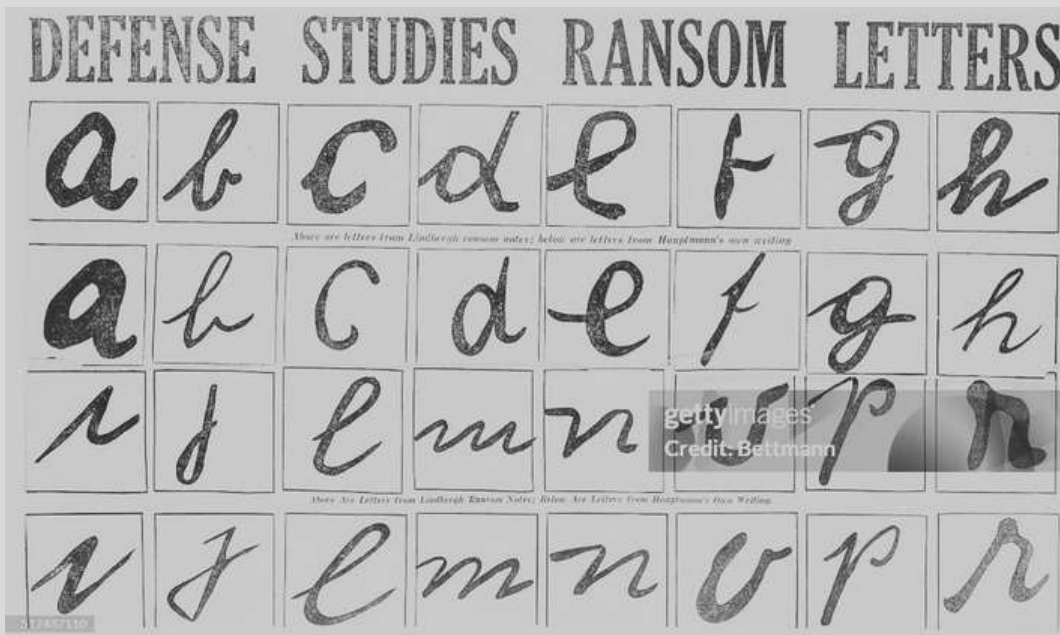 DEFENSE STUDIES RANSOM LETTERS
a b c d e f g h
Above are letters from Lindbergh ransom notes; below are letters from Hauptmann's own writing
a b c d e f g h
i j l m n o p r
gettyimages
Credit: Bettmann
Above Are Letters from Lindbergh Ransom Notes; Below Are Letters from Hauptmann's Own Writing.
i j l m n o p r
517437110